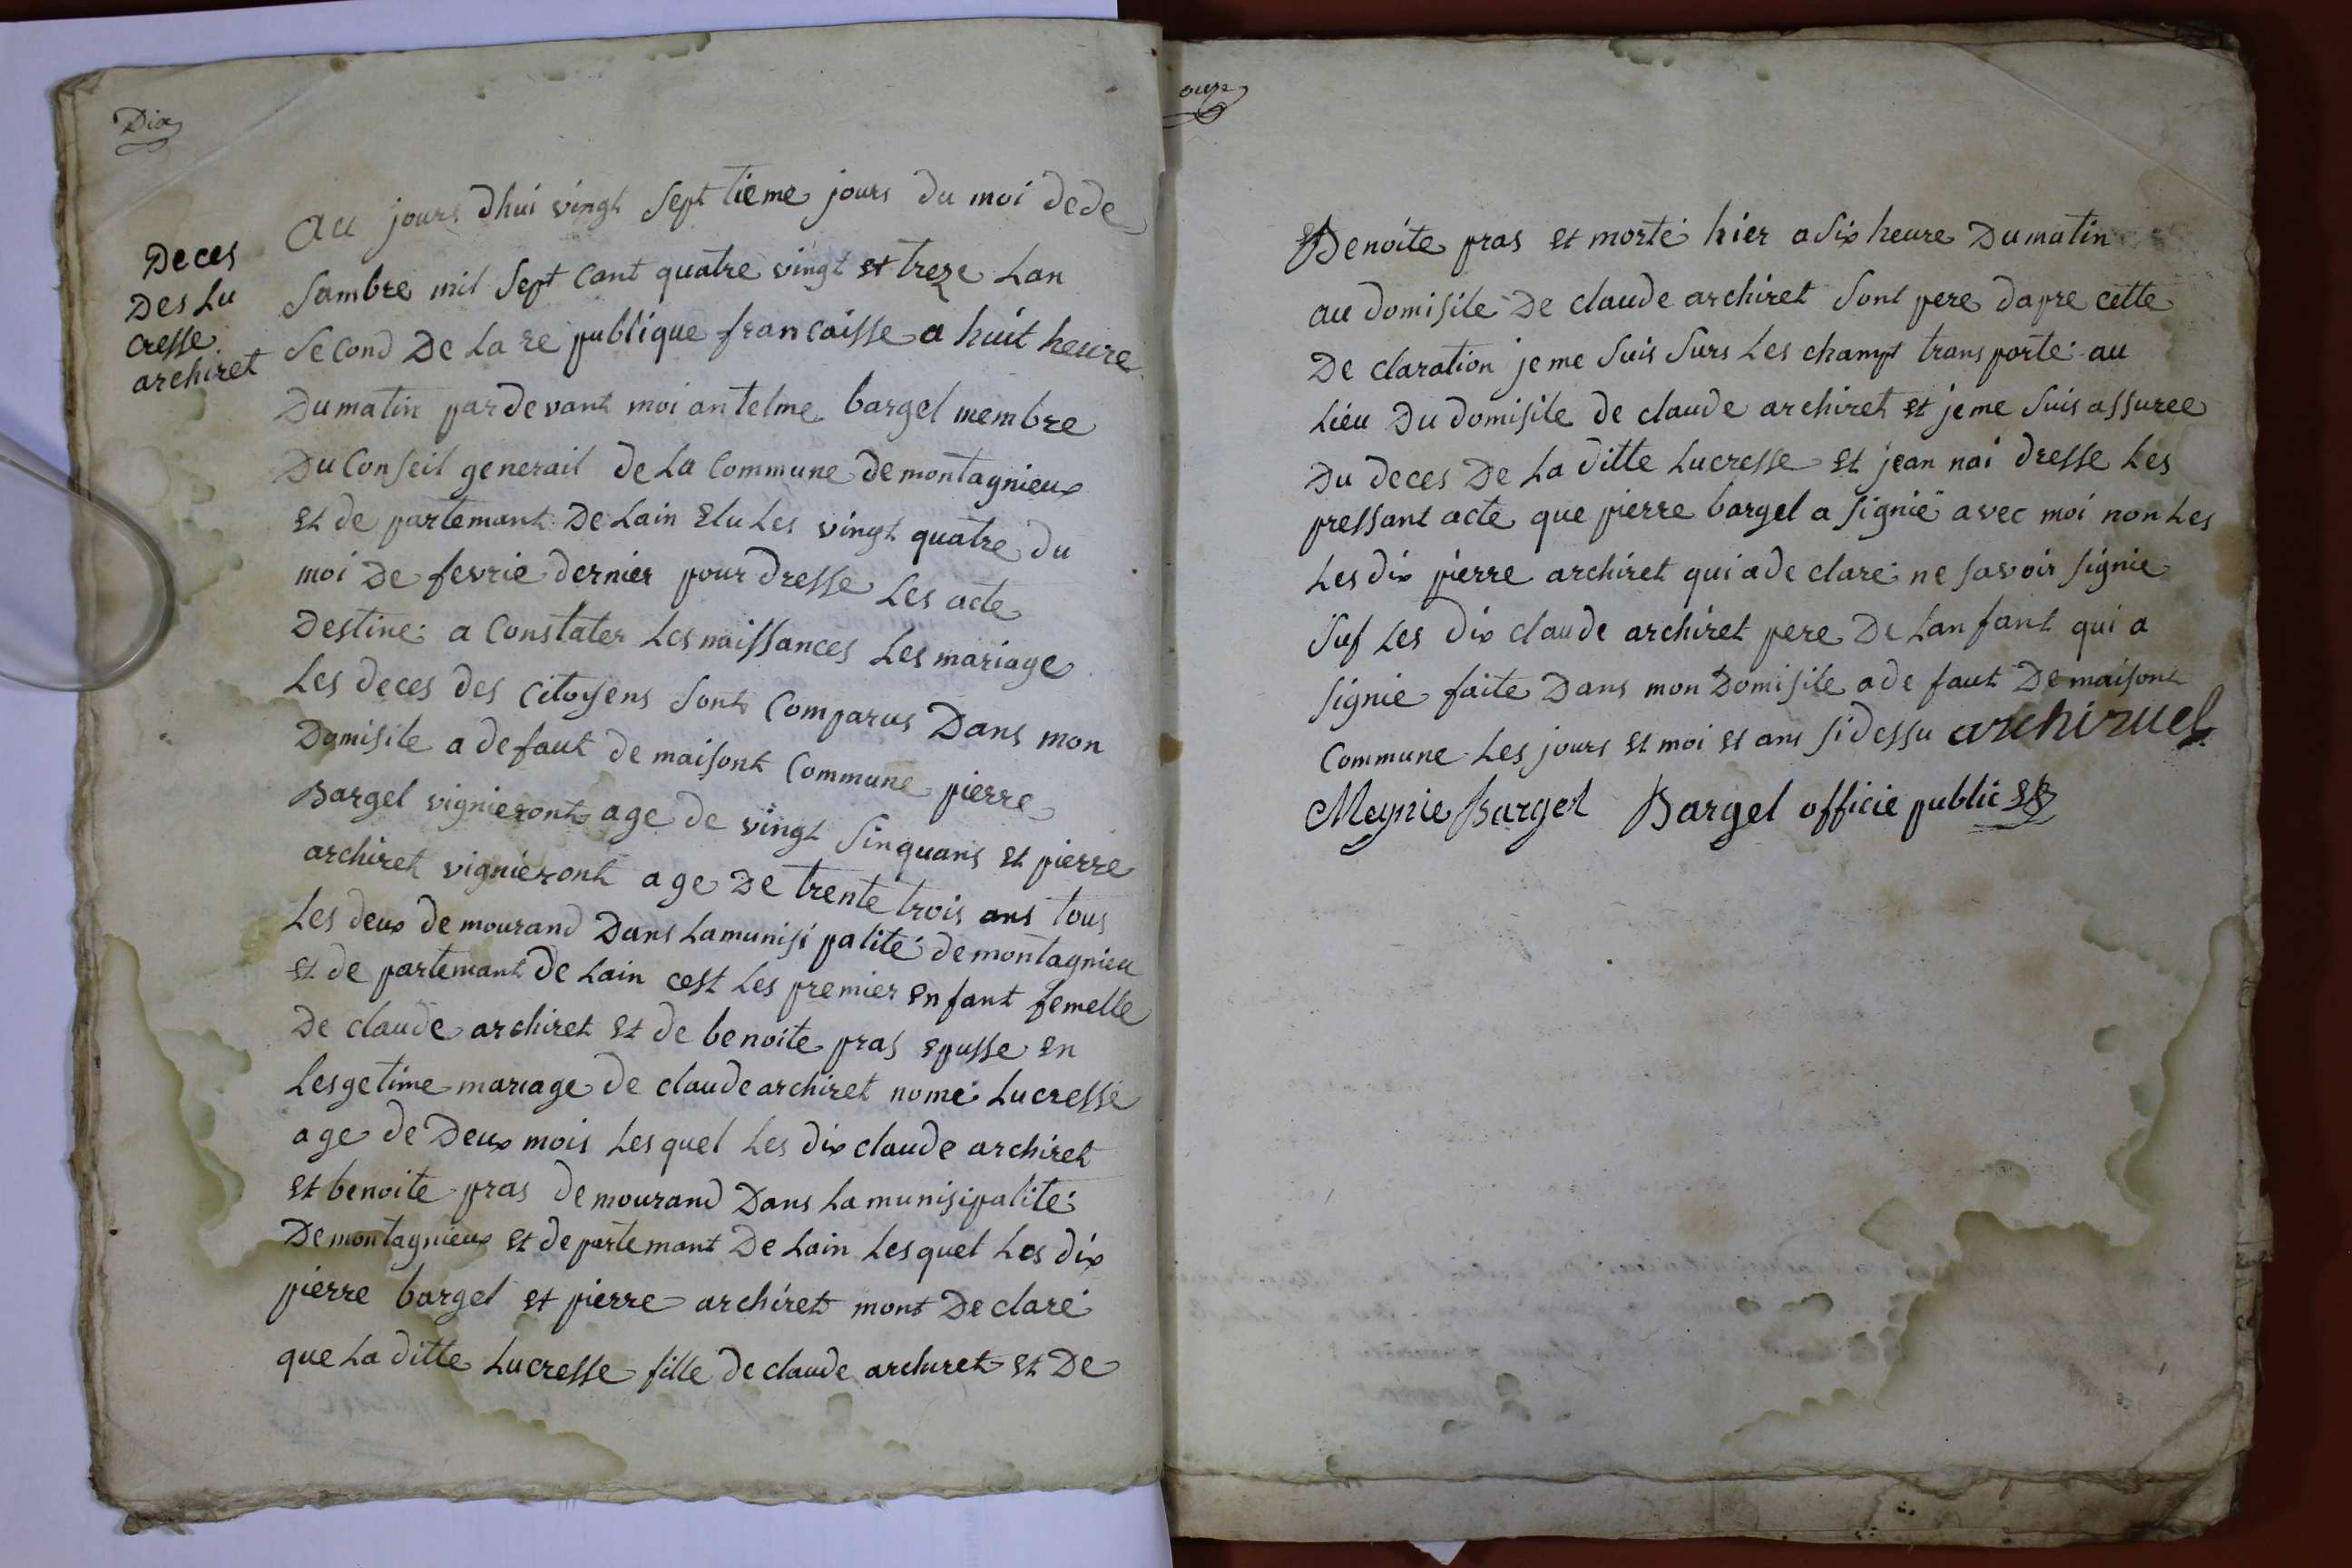 Dix
Deces
Des Lu
cresse
archiret
Au jours dhui vingt sept tieme jours du moi dede
sambre mil sept cant quatre vingt et treze Lan
second De La re publique francaisse a huit heure
Du matin par devant moi antelme bargel membre
Du Conseil generail de La Commune de montagnieux
et de partemant De Lain elu Les vingt quatre du
moi De fevrie dernier pour dresse Les acte
Destine a Constater Les naissances Les mariage
Les deces des Citoyens sont Comparus Dans mon
Domisile a defaut de maisont Commune pierre
Bargel vignieront age de vingt sinquans et pierre
archiret vignieront age De trente trois ans tous
Les deux de mourand Dans La munisi palite de montagnieu
et de partemant de Lain cest Les premier enfant femelle
De claude archiret et de benoite pras epusse en
Lesgetime mariage de claude archiret nome Lucresse
age de Deux mois Les quel Les dix claude archiret
et benoite pras de mourand Dans La munisipalite
De montagnieux et de partemant De Lain Les quel Les dix
pierre bargel et pierre archiret mont De clare
que La ditte Lucresse fille de claude archiret et De
onze
Benoite pras et morte hier a six heure Du matin
au domisile De claude archiret sont pere dapre cette
De claration je me suis surs Les champt trans porte au
Lieu Du domisile de claude archiret et je me suis assuree
Du deces De La ditte Lucresse et jean nai dresse Les
pressant acte que pierre bargel a signië avec moi non Les
Les dix pierre archiret qui a de clare ne savoir signie
suf Les dix claude archiret pere De Lanfant qui a
signie faite Dans mon Domisile a de faut De maisont
Commune Les jours et moi et ans si dessu archiruel
Meynie Bargel Bargel officie public